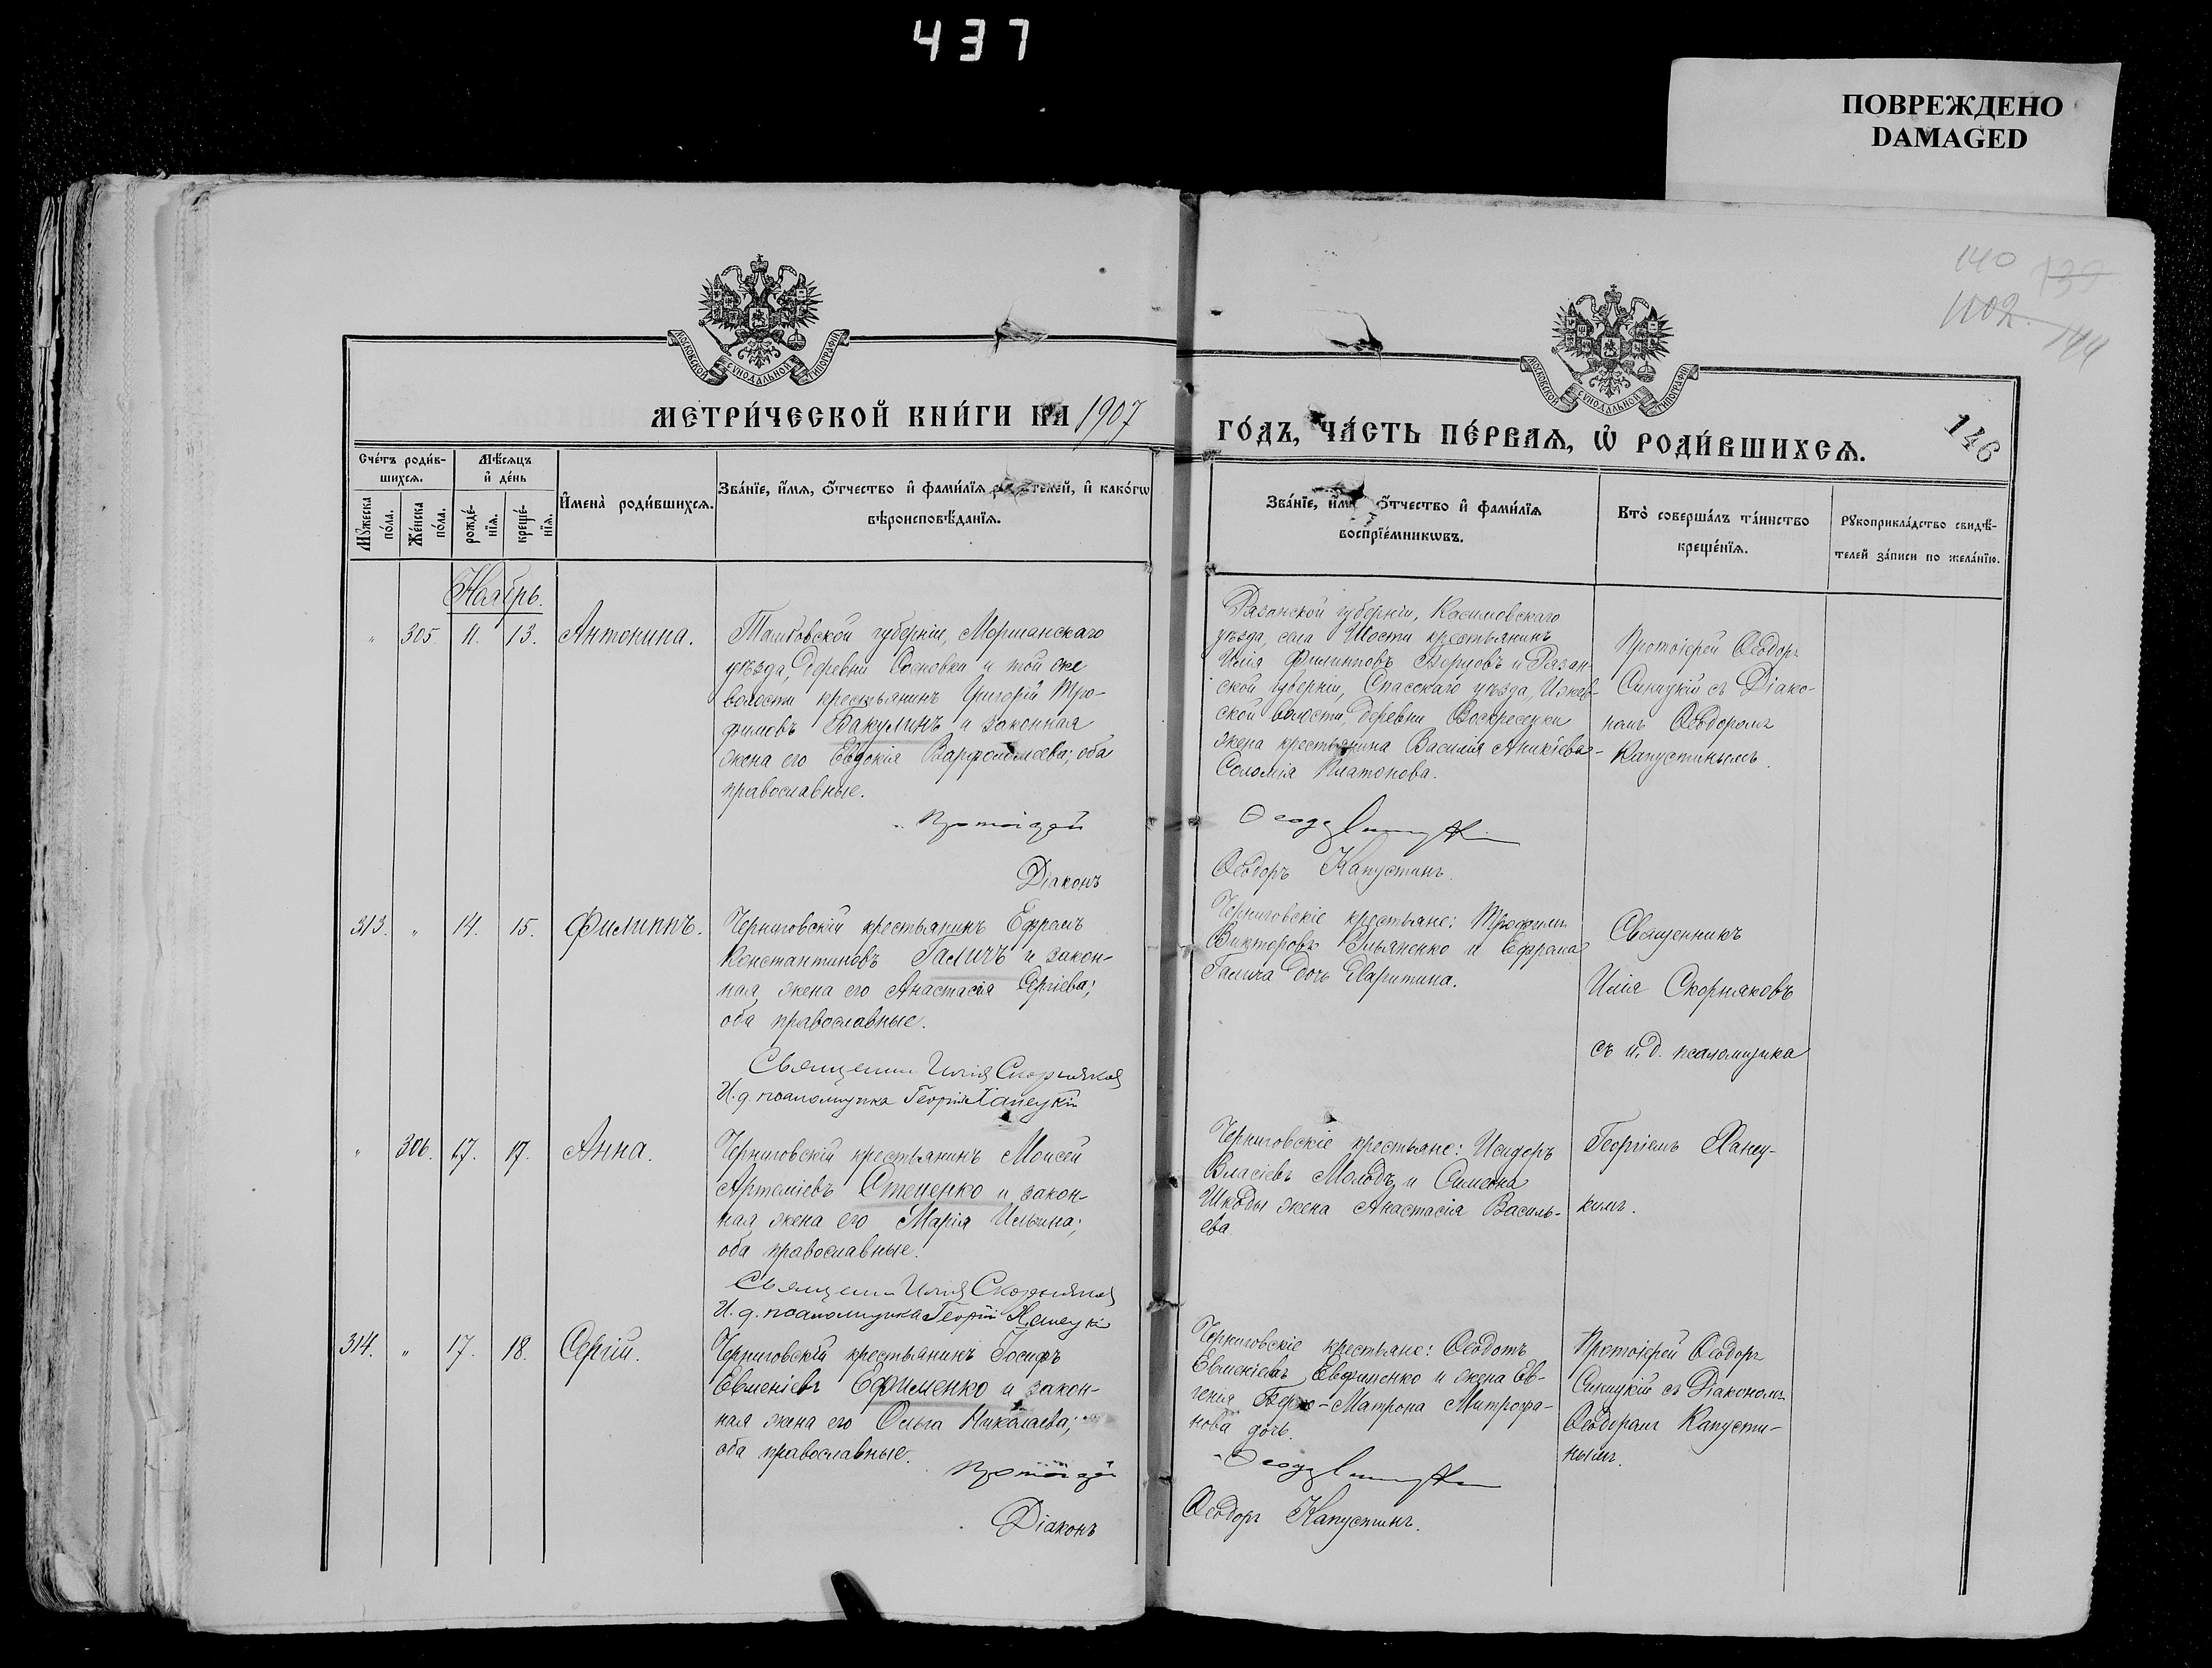 437
ПОВРЕЖДЕНО
DAMAGED
140 139
1102 144
МОСКОВСКОЙ СѴНОДАЛЬНОЙ ТИПОГРАФІИ
МОСКОВСКОЙ СѴНОДАЛЬНОЙ ТИПОГРАФІИ
МЕТРИ́ЧЕСКОЙ КНИ́ГИ НА 1907
ГО́ДЪ, ЧА́СТЬ ПЕ́РВАѦ, Ѡ РОДИ́ВШИХСѦ.
146
Сче́тъ роди́в-
шихсѧ.
Му́жеска по́ла.
Же́нска по́ла.
Мѣ́сѧцъ
и҆ де́нь
рожде́-
нїѧ.
креще́-
нїѧ.
И҆мена̀ роди́вшихсѧ.
Зва́нїе, и҆́мѧ, ѻ҆́тчество и҆ фами́лїѧ родителей, и҆ како́гѡ
вѣроисповѣ́данїѧ.
Зва́нїе, и҆́мѧ ѻ҆́тчество и҆ фами́лїѧ
воспрїе́мникѡвъ.
Кто̀ соверша́лъ та́инство
креще́нїѧ.
Рꙋкоприкла́дство свидѣ́-
телей за́писи по жела́нїю.
Ноябрь.
" 305. 11. 13. Антонина.
Тамбовской губерніи, Моршанскаго
уѣзда, деревни Сосновки и той же
волости крестьянинъ Григорій Тро-
фимовъ Бакулинъ и законная
жена его Евдокія Варфоломеева; оба
православные.
Протоіерей
Діаконъ
Рязанской губерніи, Касимовскаго
уѣзда, села Шости крестьянинъ
Илія Филипповъ и Рязан-
ской губерніи, Спасскаго уѣзда, Ижев-
ской волости, деревни Воскресенки
жена крестьянина Василія Аникіева-
Соломія Платонова.
Ѳеодоръ Капустинъ.
Протоіерей Ѳеодоръ
Синицкій съ Діако-
номъ Ѳеодоромъ
Капустинымъ.
313. " 14. 15. Филиппъ.
Черниговскій крестьянинъ Ефремъ
Константиновъ Галичъ и закон-
ная жена его Анастасія Сергіева;
оба православные.
Священникъ Илія Скорняковъ
И.д. псаломщика Георгій Ханецкій
Черниговскіе крестьяне: Трофимъ
Викторовъ Ульяненко и Ефрема
Галича дочь Харитина.
Священникъ
Илія Скорняковъ
съ и.д. псаломщика
" 306. 17. 17. Анна.
Черниговскій крестьянинъ Моисей
Артеміевъ Стеценко и закон-
ная жена его Марія Ильина;
оба православные.
Священникъ Илія Скорняковъ
И.д. псаломщика Георгій Ханецкій
Черниговскіе крестьяне: Исидоръ
Власіевъ Молодъ и Симеона
Шкоды жена Анастасія Василь-
ева.
Георгіемъ Ханец-
кимъ.
314. " 17. 18. Сергій.
Черниговскій крестьянинъ Іосифъ
Евменіевъ Ефименко и закон-
ная жена его Ольга Николаева;
оба православные.
Протоіерей
Діаконъ
Черниговскіе крестьяне: Ѳеодотъ
Евменіевъ Евфименко и жена Ев-
генія Матрона Митрофа-
нова дочь.
Ѳеодоръ Капустинъ.
Протоіерей Ѳеодоръ
Синицкій съ Діакономъ
Ѳеодоромъ Капусти-
нымъ.